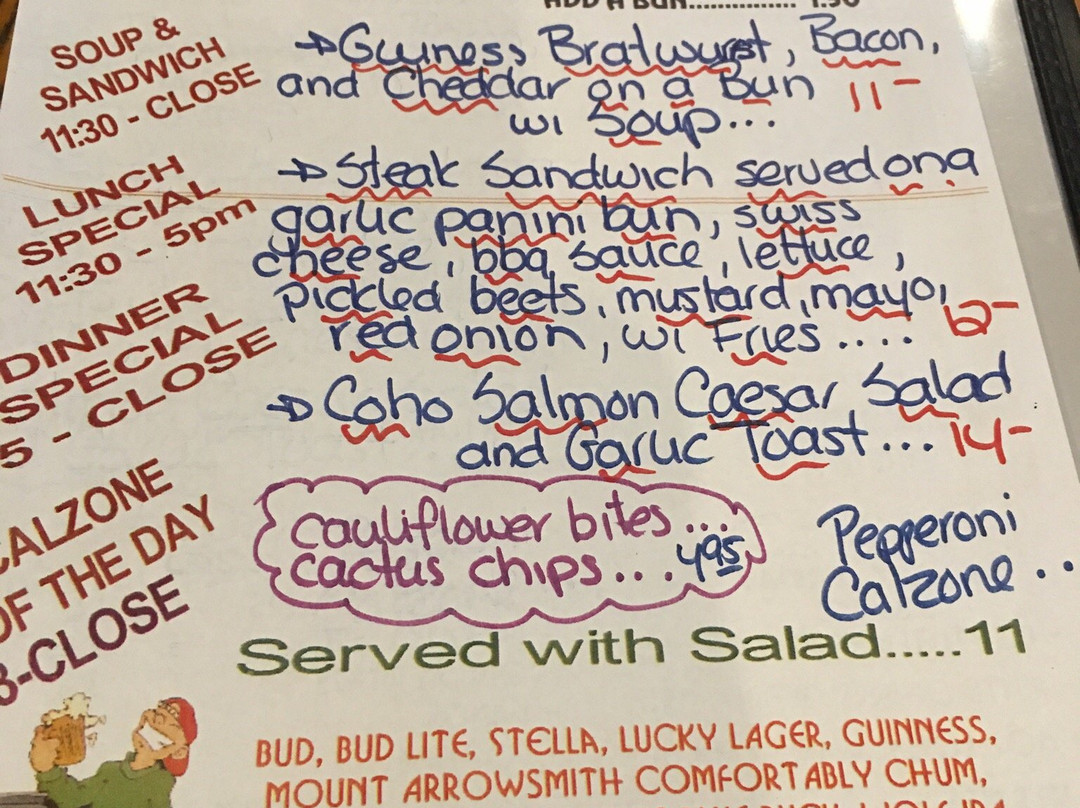 ADD A BUN................ 1.50
SOUP &
SANDWICH
11:30 - CLOSE
Guiness Bratwurst, Bacon,
and Cheddar on a Bun 11-
w/ Soup...
LUNCH
SPECIAL
11:30 - 5pm
Steak Sandwich served on a
garlic panini bun, swiss
cheese, bbq sauce, lettuce,
pickled beets, mustard, mayo,
red onion, w/ Fries.... 12-
DINNER
SPECIAL
5 - CLOSE
Coho Salmon Caesar Salad
and Garlic Toast... 14-
CALZONE
OF THE DAY
3-CLOSE
cauliflower bites...
cactus chips... 495
Pepperoni
Calzone..
Served with Salad.....11
BUD, BUD LITE, STELLA, LUCKY LAGER, GUINNESS,
MOUNT ARROWSMITH COMFORTABLY CHUM,